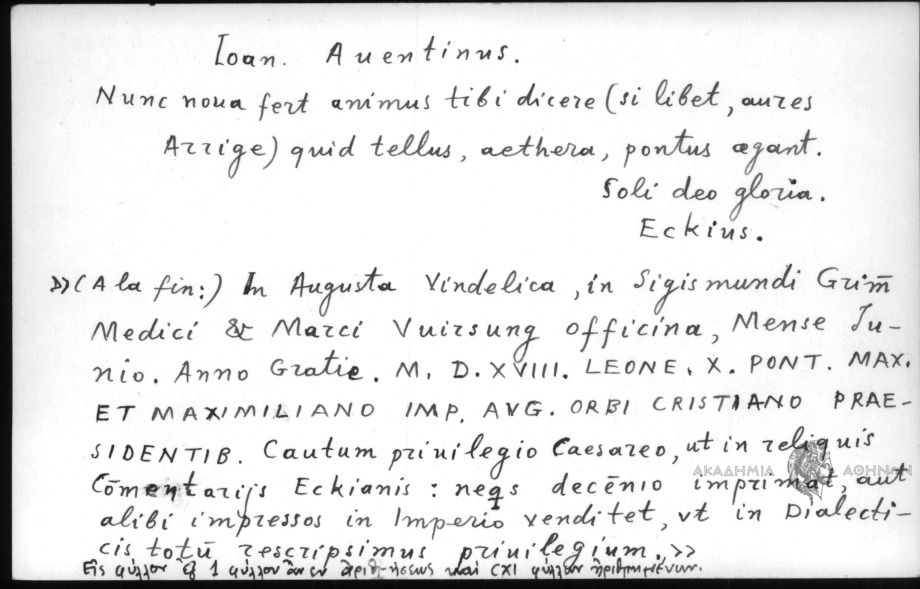 Ioan. Auentinus.
Nunc noua fert animus tibi dicere (si libet, aures
Arrige) quid tellus, aethera, pontus agant.
Soli deo gloria.
Eckius.
»(A la fin:) In Augusta Vindelica, in Sigismundi Grim̄
Medici & Marci Vuirsung officina, Mense Ju-
nio. Anno Gratie. M. D. XVIII. LEONE. X. PONT. MAX.
ET MAXIMILIANO IMP. AVG. ORBI CRISTIANO PRAE-
SIDENTIB. Cautum priuilegio Caesareo, ut in reliquis
Cōmentarijs Eckianis: neqs decēnio imprimat, aut
alibi impressos in Imperio venditet, vt in Dialecti-
cis totū rescripsimus priuilegium.»
Εἰς φύλλον ἐξ 1 φύλλου ἄνευ ἀριθμήσεως καὶ CXI φύλλων ἠριθμημένων.
ΑΚΑΔΗΜΙΑ ΑΘΗΝΩΝ